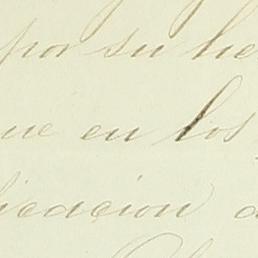 por su he
ue en los
icación a